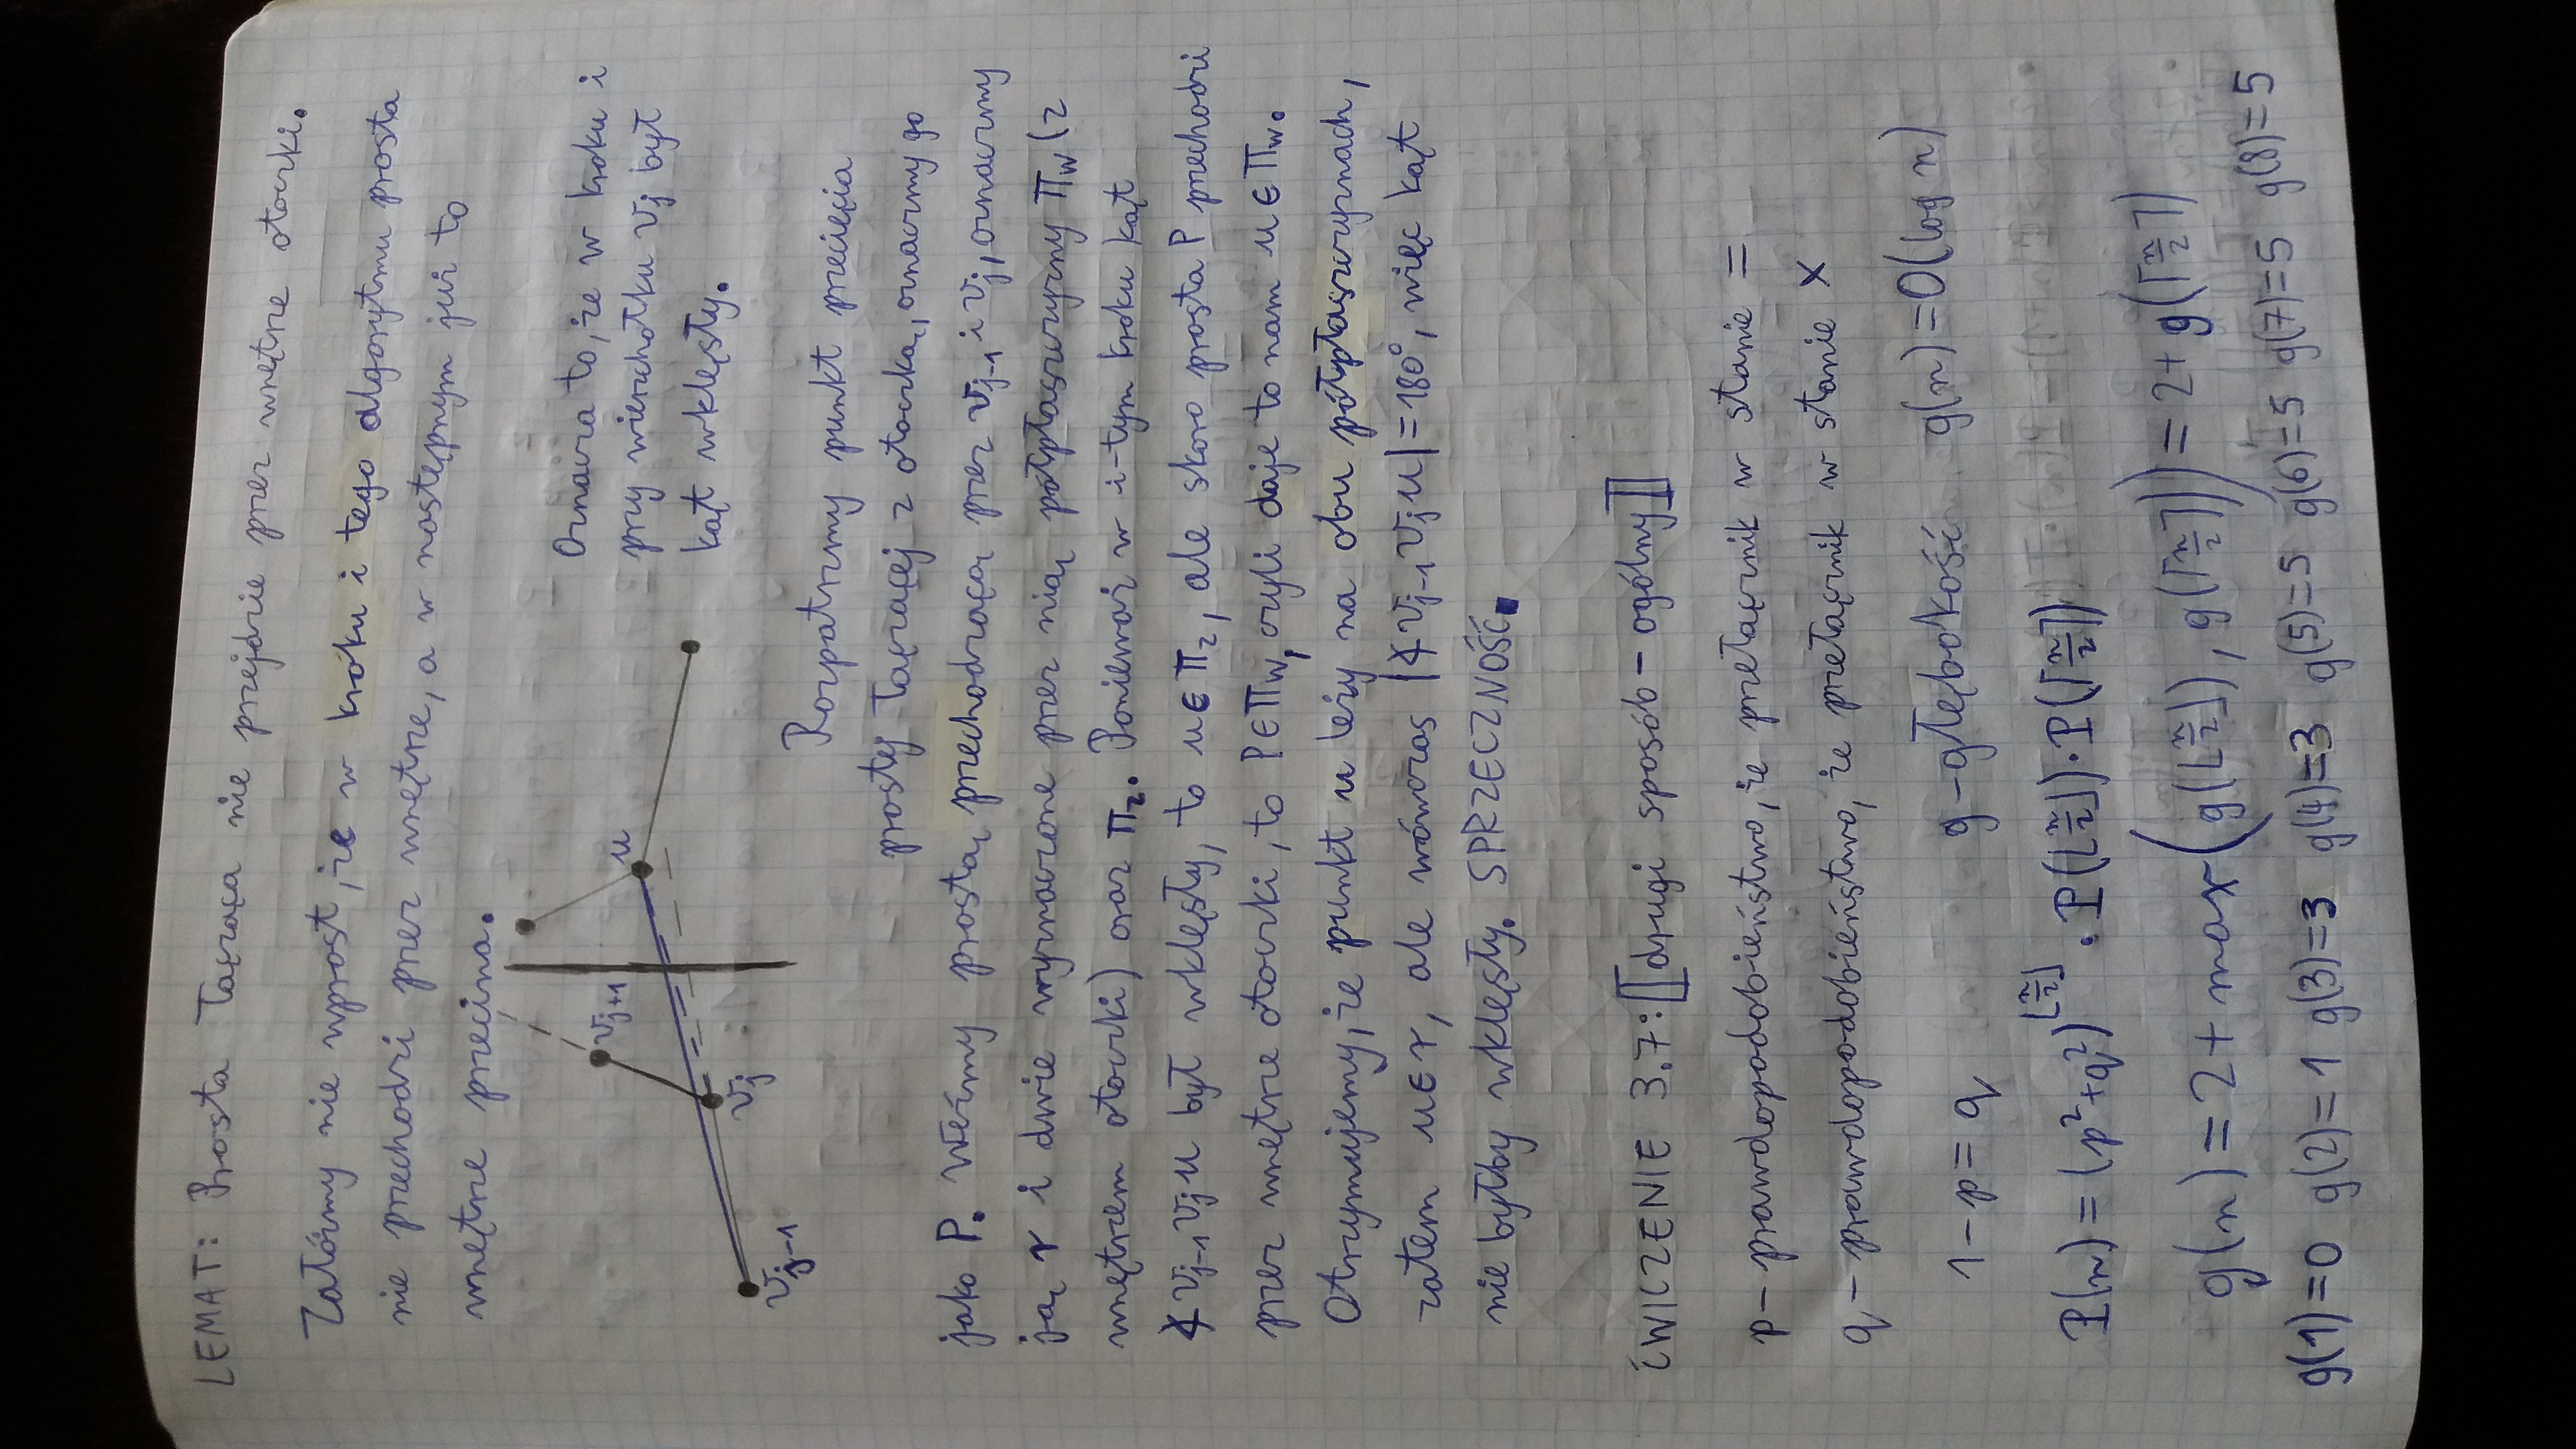 LEMAT: Prosta łącząca nie przejdzie przez wnętrze otoczki.
Załóżmy nie wprost, że w kroku i tego algorytmu prosta
nie przechodzi przez wnętrze, a w następnym już to
wnętrze przecina.
v_{j+1}
u
v_j
v_{j-1}
Oznacza to, że w kroku i
przy wierzchołku v_j był
kąt wklęsły.
Rozpatrzmy punkt przecięcia
prostej łączącej z otoczką, oznaczmy go
jako P. Weźmy prostą przechodzącą przez v_{j-1} i v_j, oznaczmy
ją r i dwie wyznaczone przez nią półpłaszczyzny π_w (z
wnętrzem otoczki) oraz π_z. Ponieważ w i-tym kroku kąt
∢ v_{j-1} v_j u był wklęsły, to u ∈ π_z, ale skoro prosta P przechodzi
przez wnętrze otoczki, to P ∈ π_w, czyli daje to nam u ∈ π_w.
Otrzymujemy, że punkt u leży na obu półpłaszczyznach,
zatem u ∈ r, ale wówczas |∢ v_{j-1} v_j u| = 180°, więc kąt
nie byłby wklęsły. SPRZECZNOŚĆ ■
ĆWICZENIE 3.7: ⟦drugi sposób – ogólny⟧
p – prawdopodobieństwo, że przełącznik w stanie =
q – prawdopodobieństwo, że przełącznik w stanie ×
1 - p = q g – głębokość g(n) = O(log n)
P(n) = (p² + q²)^{⌊n/2⌋} · P(⌊n/2⌋) · P(⌈n/2⌉)
g(n) = 2 + max(g(⌊n/2⌋), g(⌈n/2⌉)) = 2 + g(⌈n/2⌉)
g(1) = 0 g(2) = 1 g(3) = 3 g(4) = 3 g(5) = 5 g(6) = 5 g(7) = 5 g(8) = 5